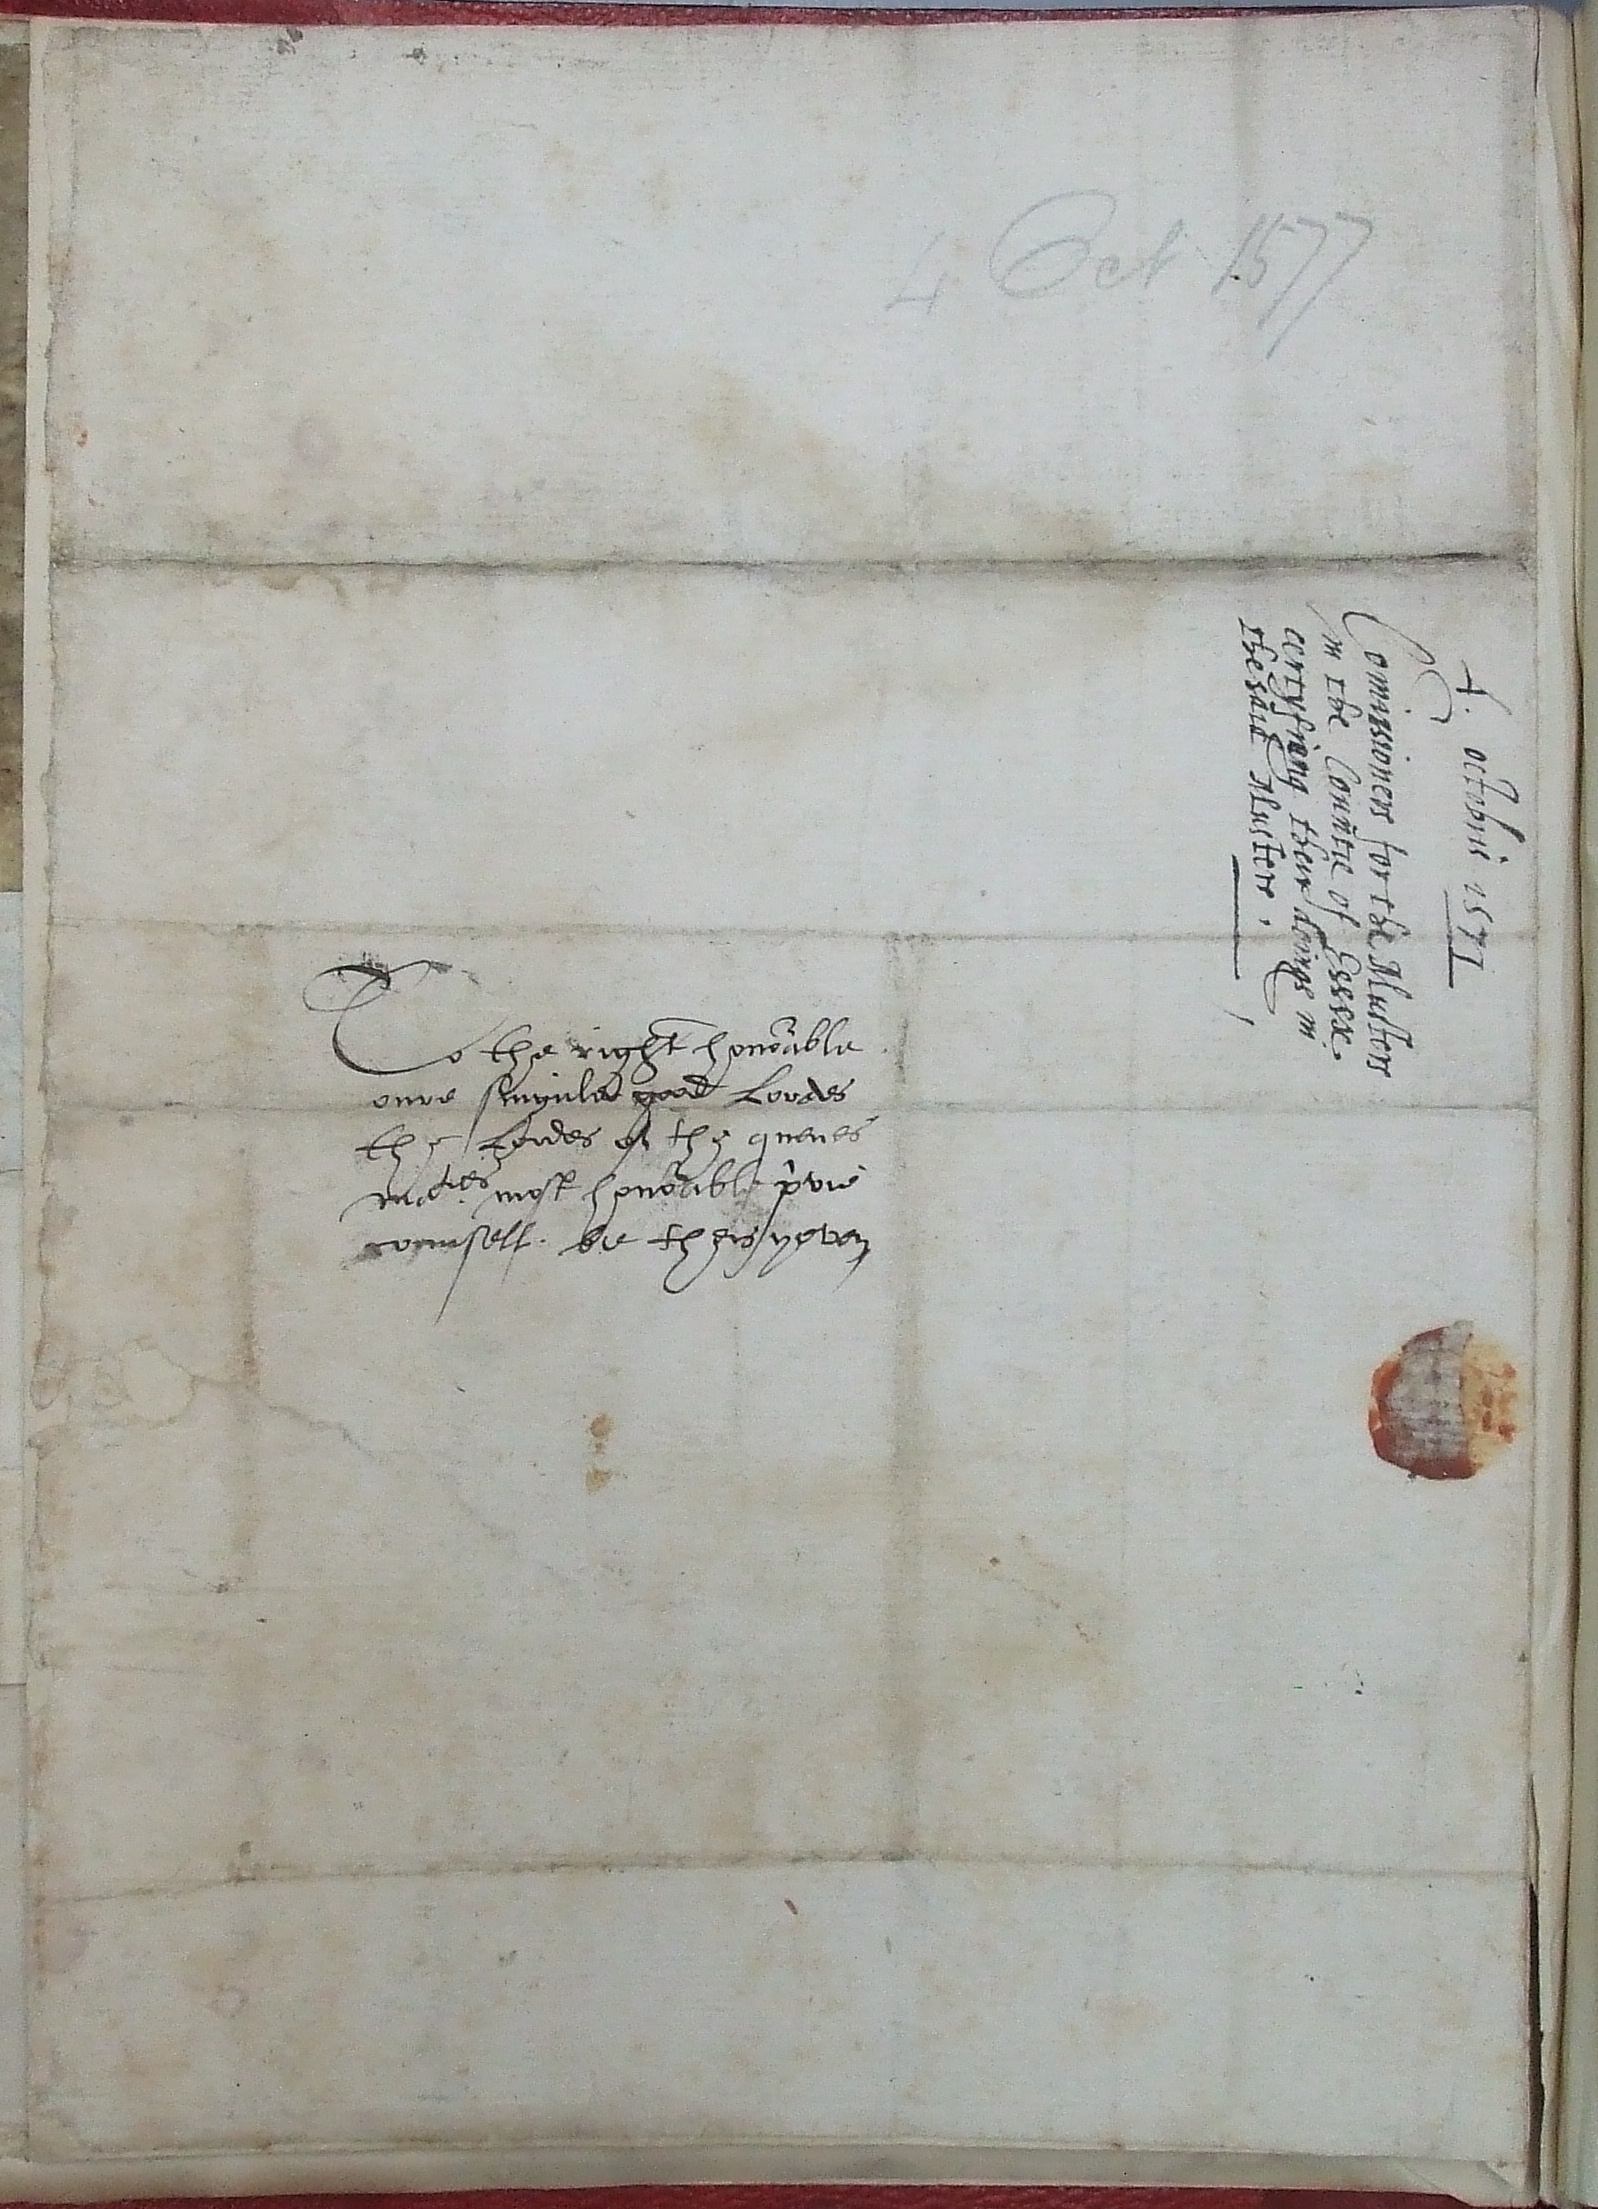 4 Oct 1577
4. octobris 1577
Comissioners for the Musters
in the Countie of Essex.
certyfieng their doings in
the said Musters.
To the right honorable
oure singuler good Lordes
the Lordes of the quenes
maties. most honorable pvie
counsell. be theis yeven